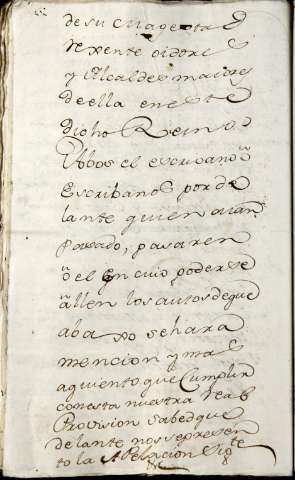 de su Magestad
rexente oidores
y Alcaldes maiores
de ella en este
dicho Reino
Vbos el escriuano ũ
Escribanos por de
lante quien aian
pasado, pasaren
õ el en cuio poder se
allen los autos de que
abaxo se hara
mencion y mas
a quien toque Cumplir
con esta nuestra real
Provision Sabed que
delante nos se presen
to la Apelacion Sigte